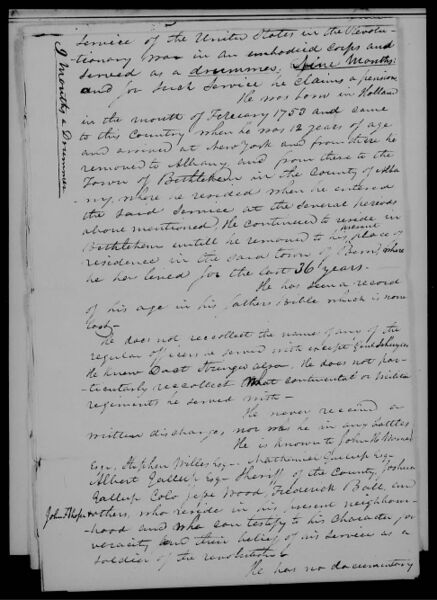 service of the United States in the Revolu-
tionary war in an embodied corps and
served as a drummer, Nine Months.
and for such service he claims a pension
He was born in Holland
in the month of February 1753 and came
to this Country when he was 12 years of age
and arrived at New York and from there he
removed to Albany and from there to the
Town of Bethlehem in the County of Alba
ny, where he resided when he entered
the said Service at the several periods
above mentioned. He continued to reside in
Bethlehem untill he removed to his present place of
residence in the said town of Bern, where
he has lived for the last 36 years.
He has seen a record
of his age in his fathers Bible which is now
lost
He does not recollect the name of any of the
regular officers he served with except Genl Schuyler
He knew
He does not par-
ticularly reccollect what continental or militia
regiments he served with
He never received a
written discharge, nor was he in any battles
He is known to John H.
Esqr, Stephen Willes Esqr, Nathaniel Gallup Esqr
Albert Gallup Esqr Sheriff of the County, Joshua
Gallup, Colo Jesse Wood, Frederick Ball, and
John F
others, who reside in his present neighbour-
hood and who can testify to his character for
veracity and their belief of his service as a
soldier of the revolution
He has no documentary
9 Months a Drummer